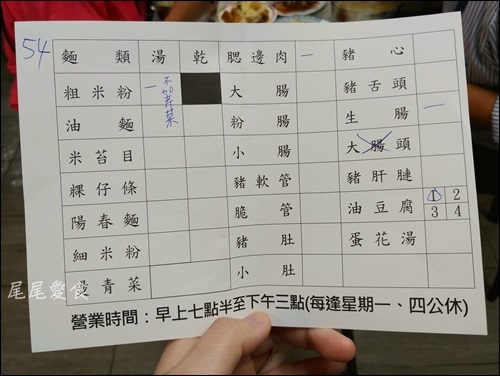 54
麵類 湯 乾 腮邊肉 一 豬心
粗米粉 一 不加芹菜 大腸 豬舌頭
油麵 粉腸 生腸 一
米苔目 小腸 大腸頭
粿仔條 豬軟管 豬肝腱
陽春麵 脆管 油豆腐 1 2 3 4
細米粉 豬肚 蛋花湯
青菜 小肚
營業時間：早上七點半至下午三點(每逢星期一、四公休)
尾尾愛食